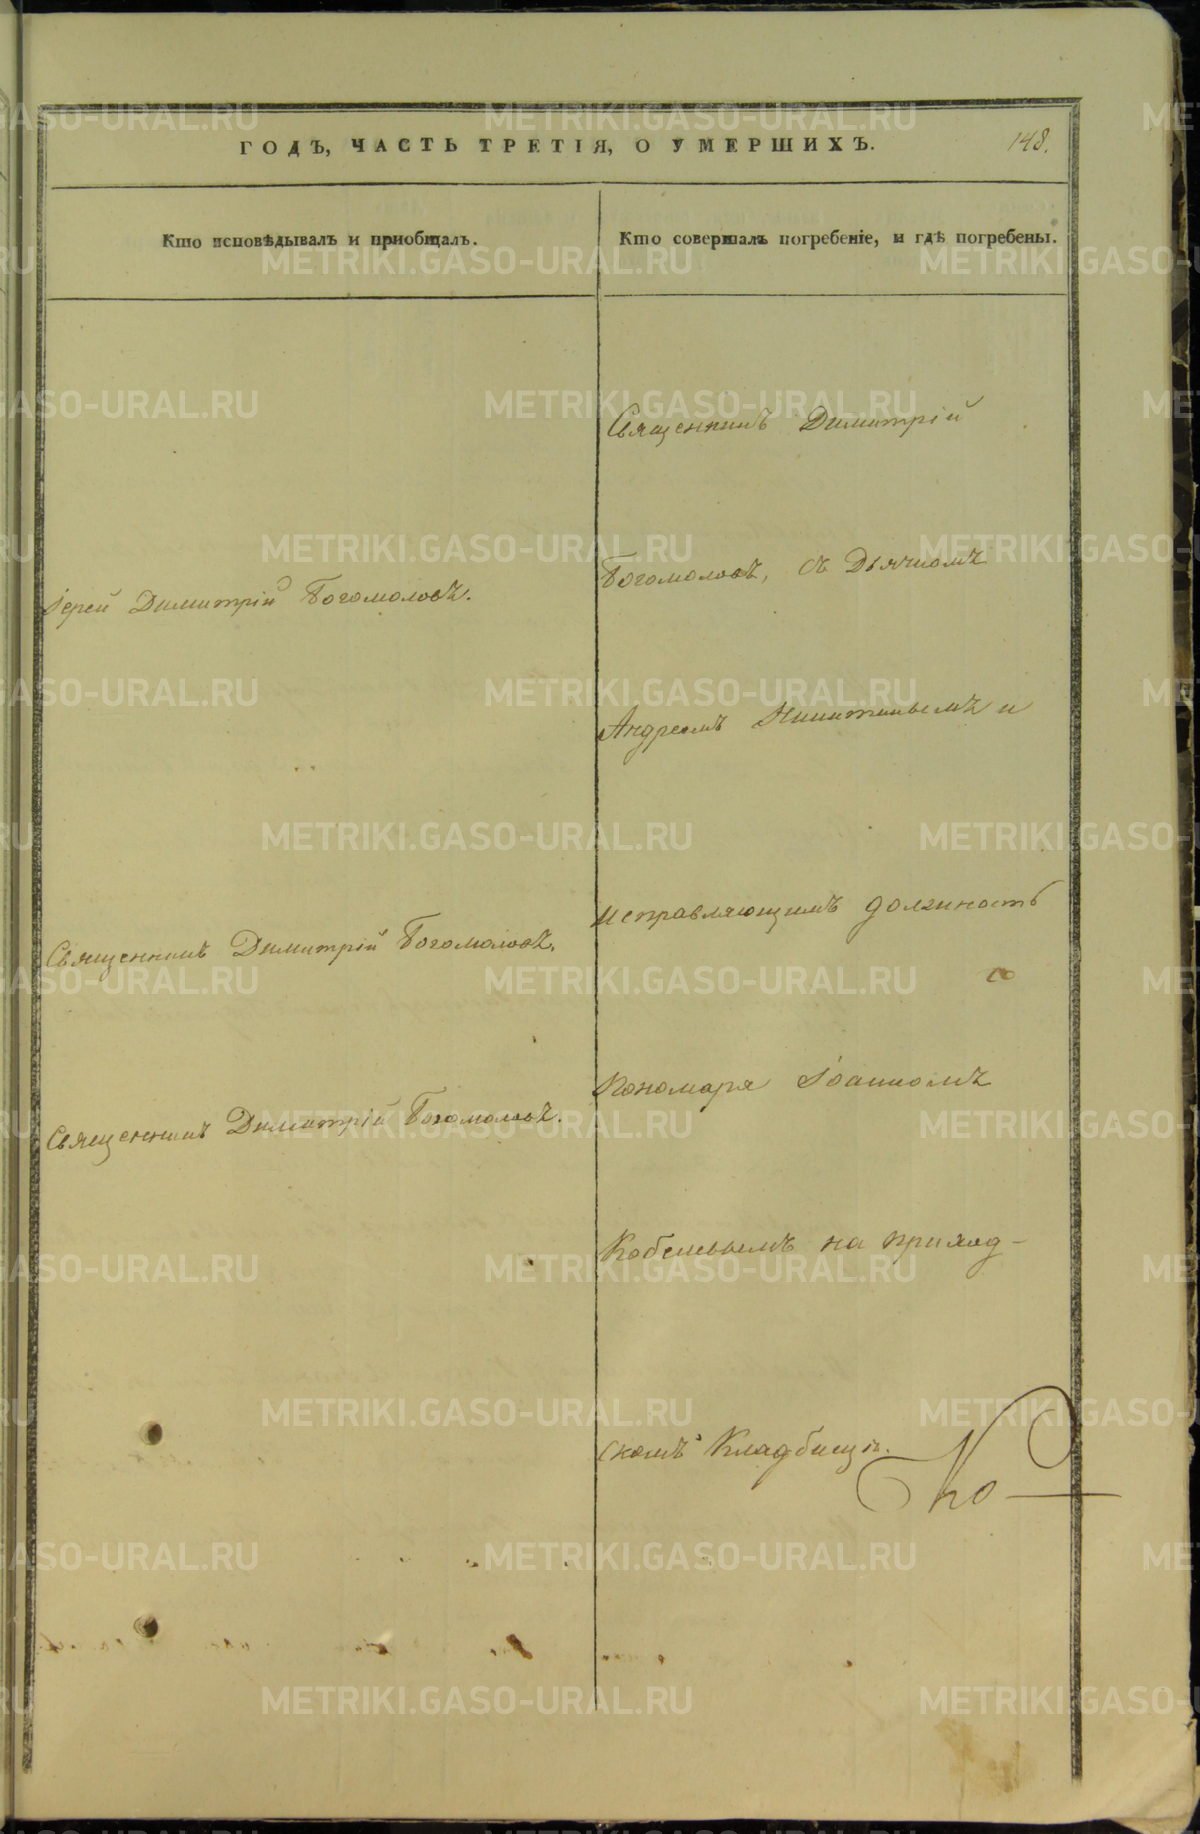 ГОДЪ, ЧАСТЬ ТРЕТІЯ, О УМЕРШИХЪ.
148.
Кто исповѣдывалъ и приобщалъ.
Кто совершалъ погребеніе, и гдѣ погребены.
Іерей Димитрій Богомоловъ.
Священникъ Димитрій Богомоловъ.
Священникъ Димитрій Богомоловъ.
Священникъ Димитрій
Богомоловъ, съ Дьячкомъ
Андреемъ Никитинымъ и
исправляющимъ должность
Пономаря Іоанномъ
Кобелевымъ на приход-
скомъ Кладбищѣ.
по
METRIKI.GASO-URAL.RU